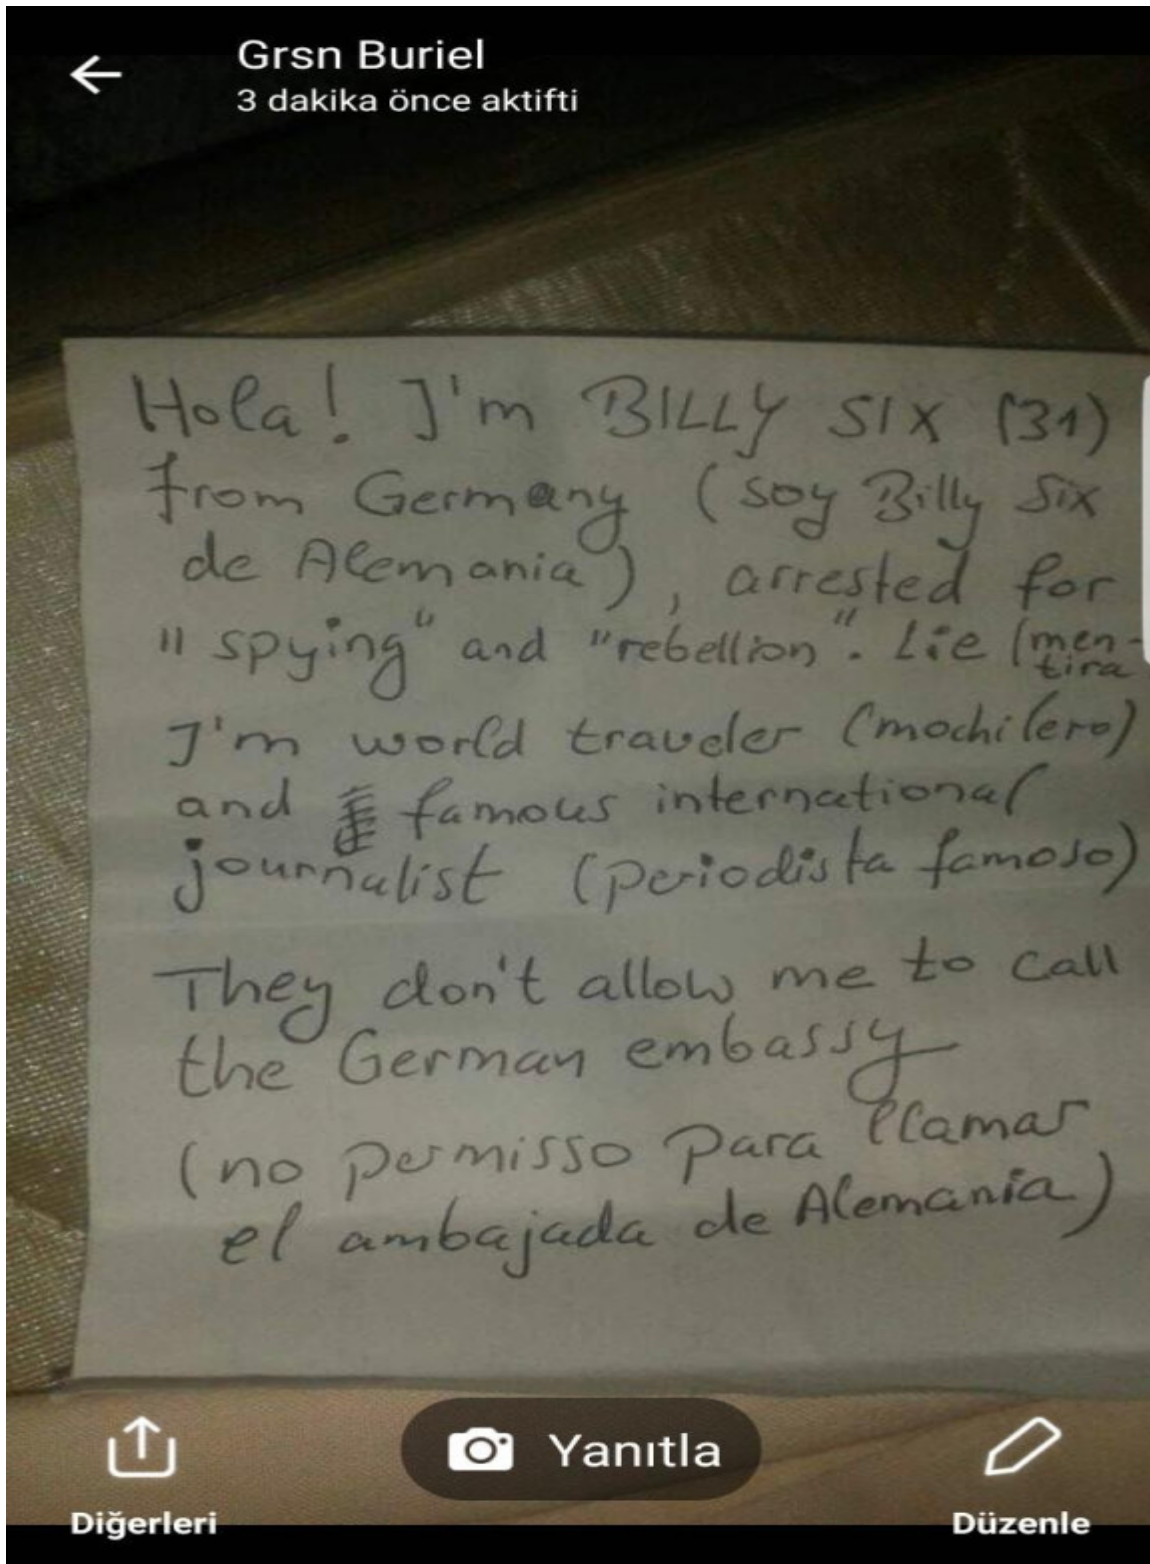 Grsn Buriel
3 dakika önce aktifti
Hola! I'm BILLY SIX (31)
from Germany (soy Billy Six
de Alemania), arrested for
"spying" and "rebellion". Lie (men-
tira
I'm world traveler (mochilero)
and famous international
journalist (periodista famoso)
They don't allow me to call
the German embassy
(no permisso para llamar
el ambajada de Alemania)
Yanıtla
Diğerleri
Düzenle